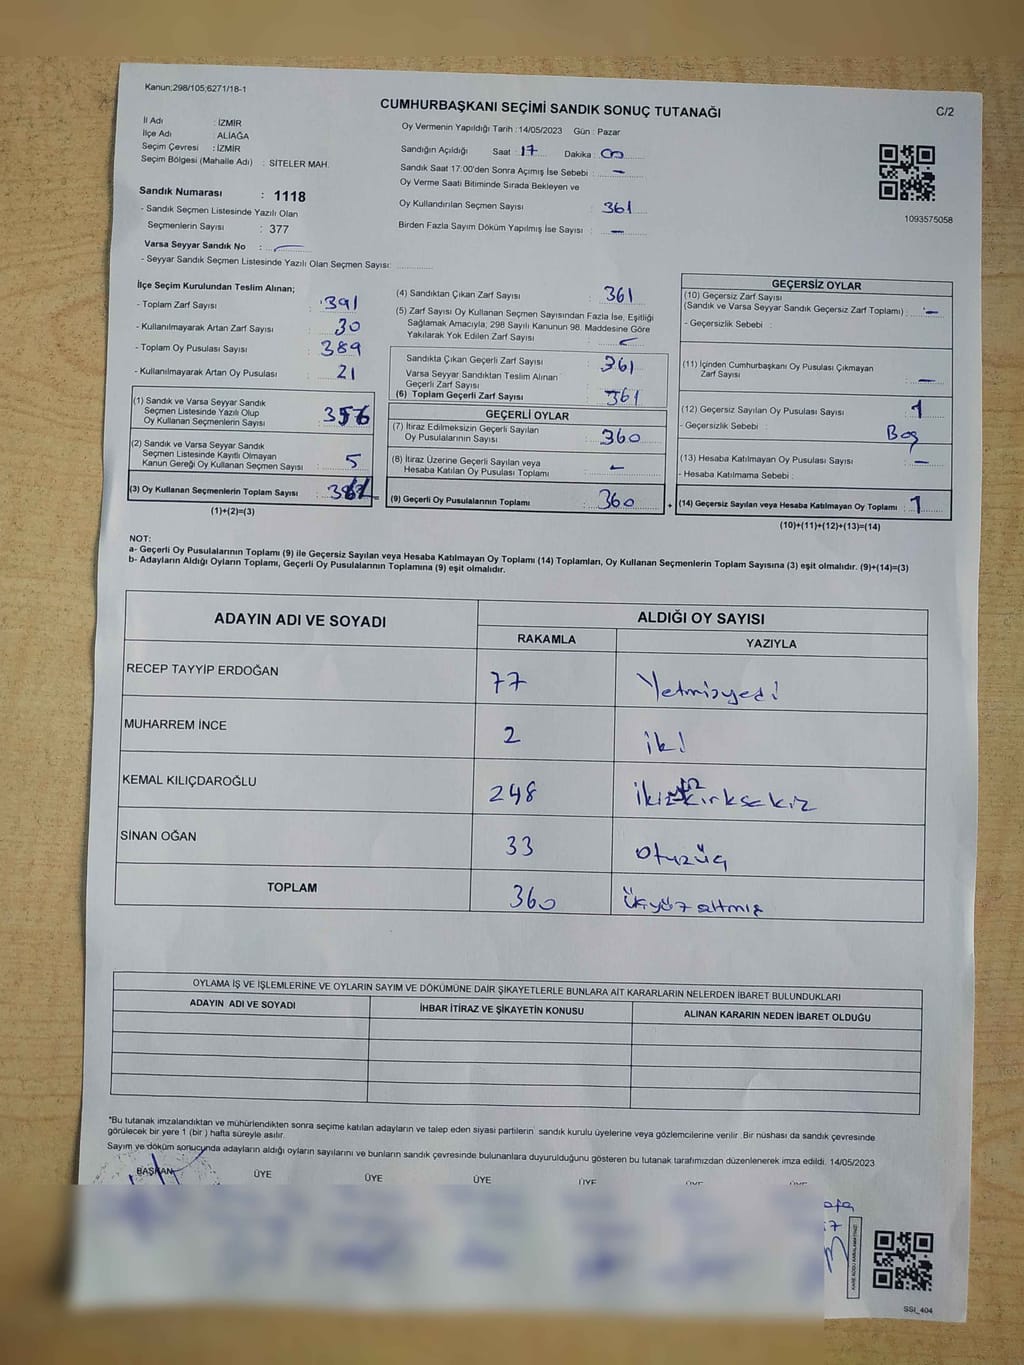 Kanun;298/105;6271/18-1
CUMHURBAŞKANI SEÇİMİ SANDIK SONUÇ TUTANAĞI
C/2
İl Adı : İZMİR
İlçe Adı : ALİAĞA
Seçim Çevresi : İZMİR
Seçim Bölgesi (Mahalle Adı) : SİTELER MAH.
Sandık Numarası : 1118
- Sandık Seçmen Listesinde Yazılı Olan
Seçmenlerin Sayısı : 377
Varsa Seyyar Sandık No :
- Seyyar Sandık Seçmen Listesinde Yazılı Olan Seçmen Sayısı:
Oy Vermenin Yapıldığı Tarih : 14/05/2023 Gün : Pazar
Sandığın Açıldığı Saat : 17 Dakika : 00
Sandık Saat 17:00'den Sonra Açımış İse Sebebi : –
Oy Verme Saati Bitiminde Sırada Bekleyen ve
Oy Kullandırılan Seçmen Sayısı : 361
Birden Fazla Sayım Döküm Yapılmış İse Sayısı : –
1093575058
İlçe Seçim Kurulundan Teslim Alınan;
- Toplam Zarf Sayısı : 391
- Kullanılmayarak Artan Zarf Sayısı : 30
- Toplam Oy Pusulası Sayısı : 389
- Kullanılmayarak Artan Oy Pusulası : 21
(1) Sandık ve Varsa Seyyar Sandık
Seçmen Listesinde Yazılı Olup
Oy Kullanan Seçmenlerin Sayısı : 356
(2) Sandık ve Varsa Seyyar Sandık
Seçmen Listesinde Kayıtlı Olmayan
Kanun Gereği Oy Kullanan Seçmen Sayısı : 5
(3) Oy Kullanan Seçmenlerin Toplam Sayısı :
(1)+(2)=(3)
(4) Sandıktan Çıkan Zarf Sayısı : 361
(5) Zarf Sayısı Oy Kullanan Seçmen Sayısından Fazla İse, Eşitliği
Sağlamak Amacıyla; 298 Sayılı Kanunun 98. Maddesine Göre
Yakılarak Yok Edilen Zarf Sayısı :
Sandıkta Çıkan Geçerli Zarf Sayısı : 361
Varsa Seyyar Sandıktan Teslim Alınan
Geçerli Zarf Sayısı
(6) Toplam Geçerli Zarf Sayısı : 361
GEÇERLİ OYLAR
(7) İtiraz Edilmeksizin Geçerli Sayılan
Oy Pusulalarının Sayısı : 360
(8) İtiraz Üzerine Geçerli Sayılan veya
Hesaba Katılan Oy Pusulası Toplamı : –
(9) Geçerli Oy Pusulalarının Toplamı : 360
GEÇERSİZ OYLAR
(10) Geçersiz Zarf Sayısı
(Sandık ve Varsa Seyyar Sandık Geçersiz Zarf Toplamı) : –
- Geçersizlik Sebebi :
(11) İçinden Cumhurbaşkanı Oy Pusulası Çıkmayan
Zarf Sayısı : –
(12) Geçersiz Sayılan Oy Pusulası Sayısı : 1
- Geçersizlik Sebebi : Boş
(13) Hesaba Katılmayan Oy Pusulası Sayısı : –
- Hesaba Katılmama Sebebi :
(14) Geçersiz Sayılan veya Hesaba Katılmayan Oy Toplamı : 1
(10)+(11)+(12)+(13)=(14)
NOT:
a- Geçerli Oy Pusulalarının Toplamı (9) ile Geçersiz Sayılan veya Hesaba Katılmayan Oy Toplamı (14) Toplamları, Oy Kullanan Seçmenlerin Toplam Sayısına (3) eşit olmalıdır. (9)+(14)=(3)
b- Adayların Aldığı Oyların Toplamı, Geçerli Oy Pusulalarının Toplamına (9) eşit olmalıdır.
ADAYIN ADI VE SOYADI
ALDIĞI OY SAYISI
RAKAMLA YAZIYLA
RECEP TAYYİP ERDOĞAN 77 Yetmişyedi
MUHARREM İNCE 2 iki
KEMAL KILIÇDAROĞLU 248
SİNAN OĞAN 33 otuzüç
TOPLAM 360 üçyüz altmış
OYLAMA İŞ VE İŞLEMLERİNE VE OYLARIN SAYIM VE DÖKÜMÜNE DAİR ŞİKAYETLERLE BUNLARA AİT KARARLARIN NELERDEN İBARET BULUNDUKLARI
ADAYIN ADI VE SOYADI İHBAR İTİRAZ VE ŞİKAYETİN KONUSU ALINAN KARARIN NEDEN İBARET OLDUĞU
*Bu tutanak imzalandıktan ve mühürlendikten sonra seçime katılan adayların ve talep eden siyasi partilerin sandık kurulu üyelerine veya gözlemcilerine verilir. Bir nüshası da sandık çevresinde
görülecek bir yere 1 (bir ) hafta süreyle asılır.
Sayım ve döküm sonucunda adayların aldığı oyların sayılarını ve bunların sandık çevresinde bulunanlara duyurulduğunu gösteren bu tutanak tarafımızdan düzenlenerek imza edildi. 14/05/2023
BAŞKAN ÜYE ÜYE ÜYE ÜYE
SSI_404